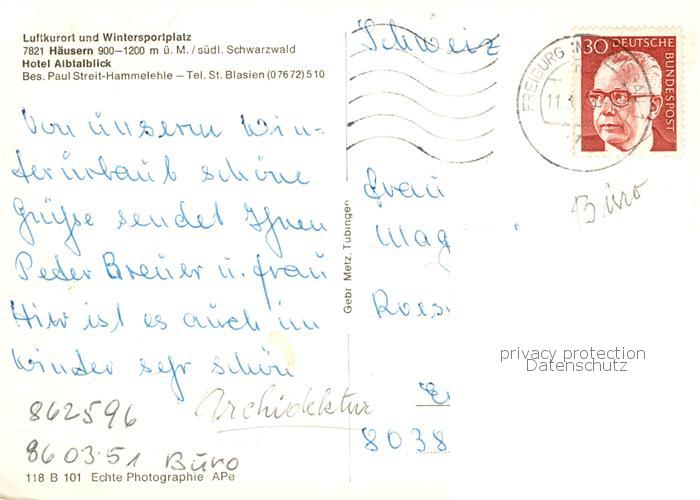 Luftkurort und Wintersportplatz
7821 Häusern 900—1200 m ü. M. / südl. Schwarzwald
Hotel Albtalblick
Bes. Paul Streit-Hammelehle — Tel. St. Blasien (07672) 510
Von unserm Win-
terurlaub schöne
Grüße sendet Ihnen
Peter Breuer u. Frau
Hier ist es auch im
Winter sehr schön
862596
Architektur
860351 Büro
118 B 101 Echte Photographie APe
Gebr. Metz, Tübingen
Schweiz
FREIBURG IM
11.
30 DEUTSCHE BUNDESPOST
Büro
Frau
Mag
8038
privacy protection
Datenschutz